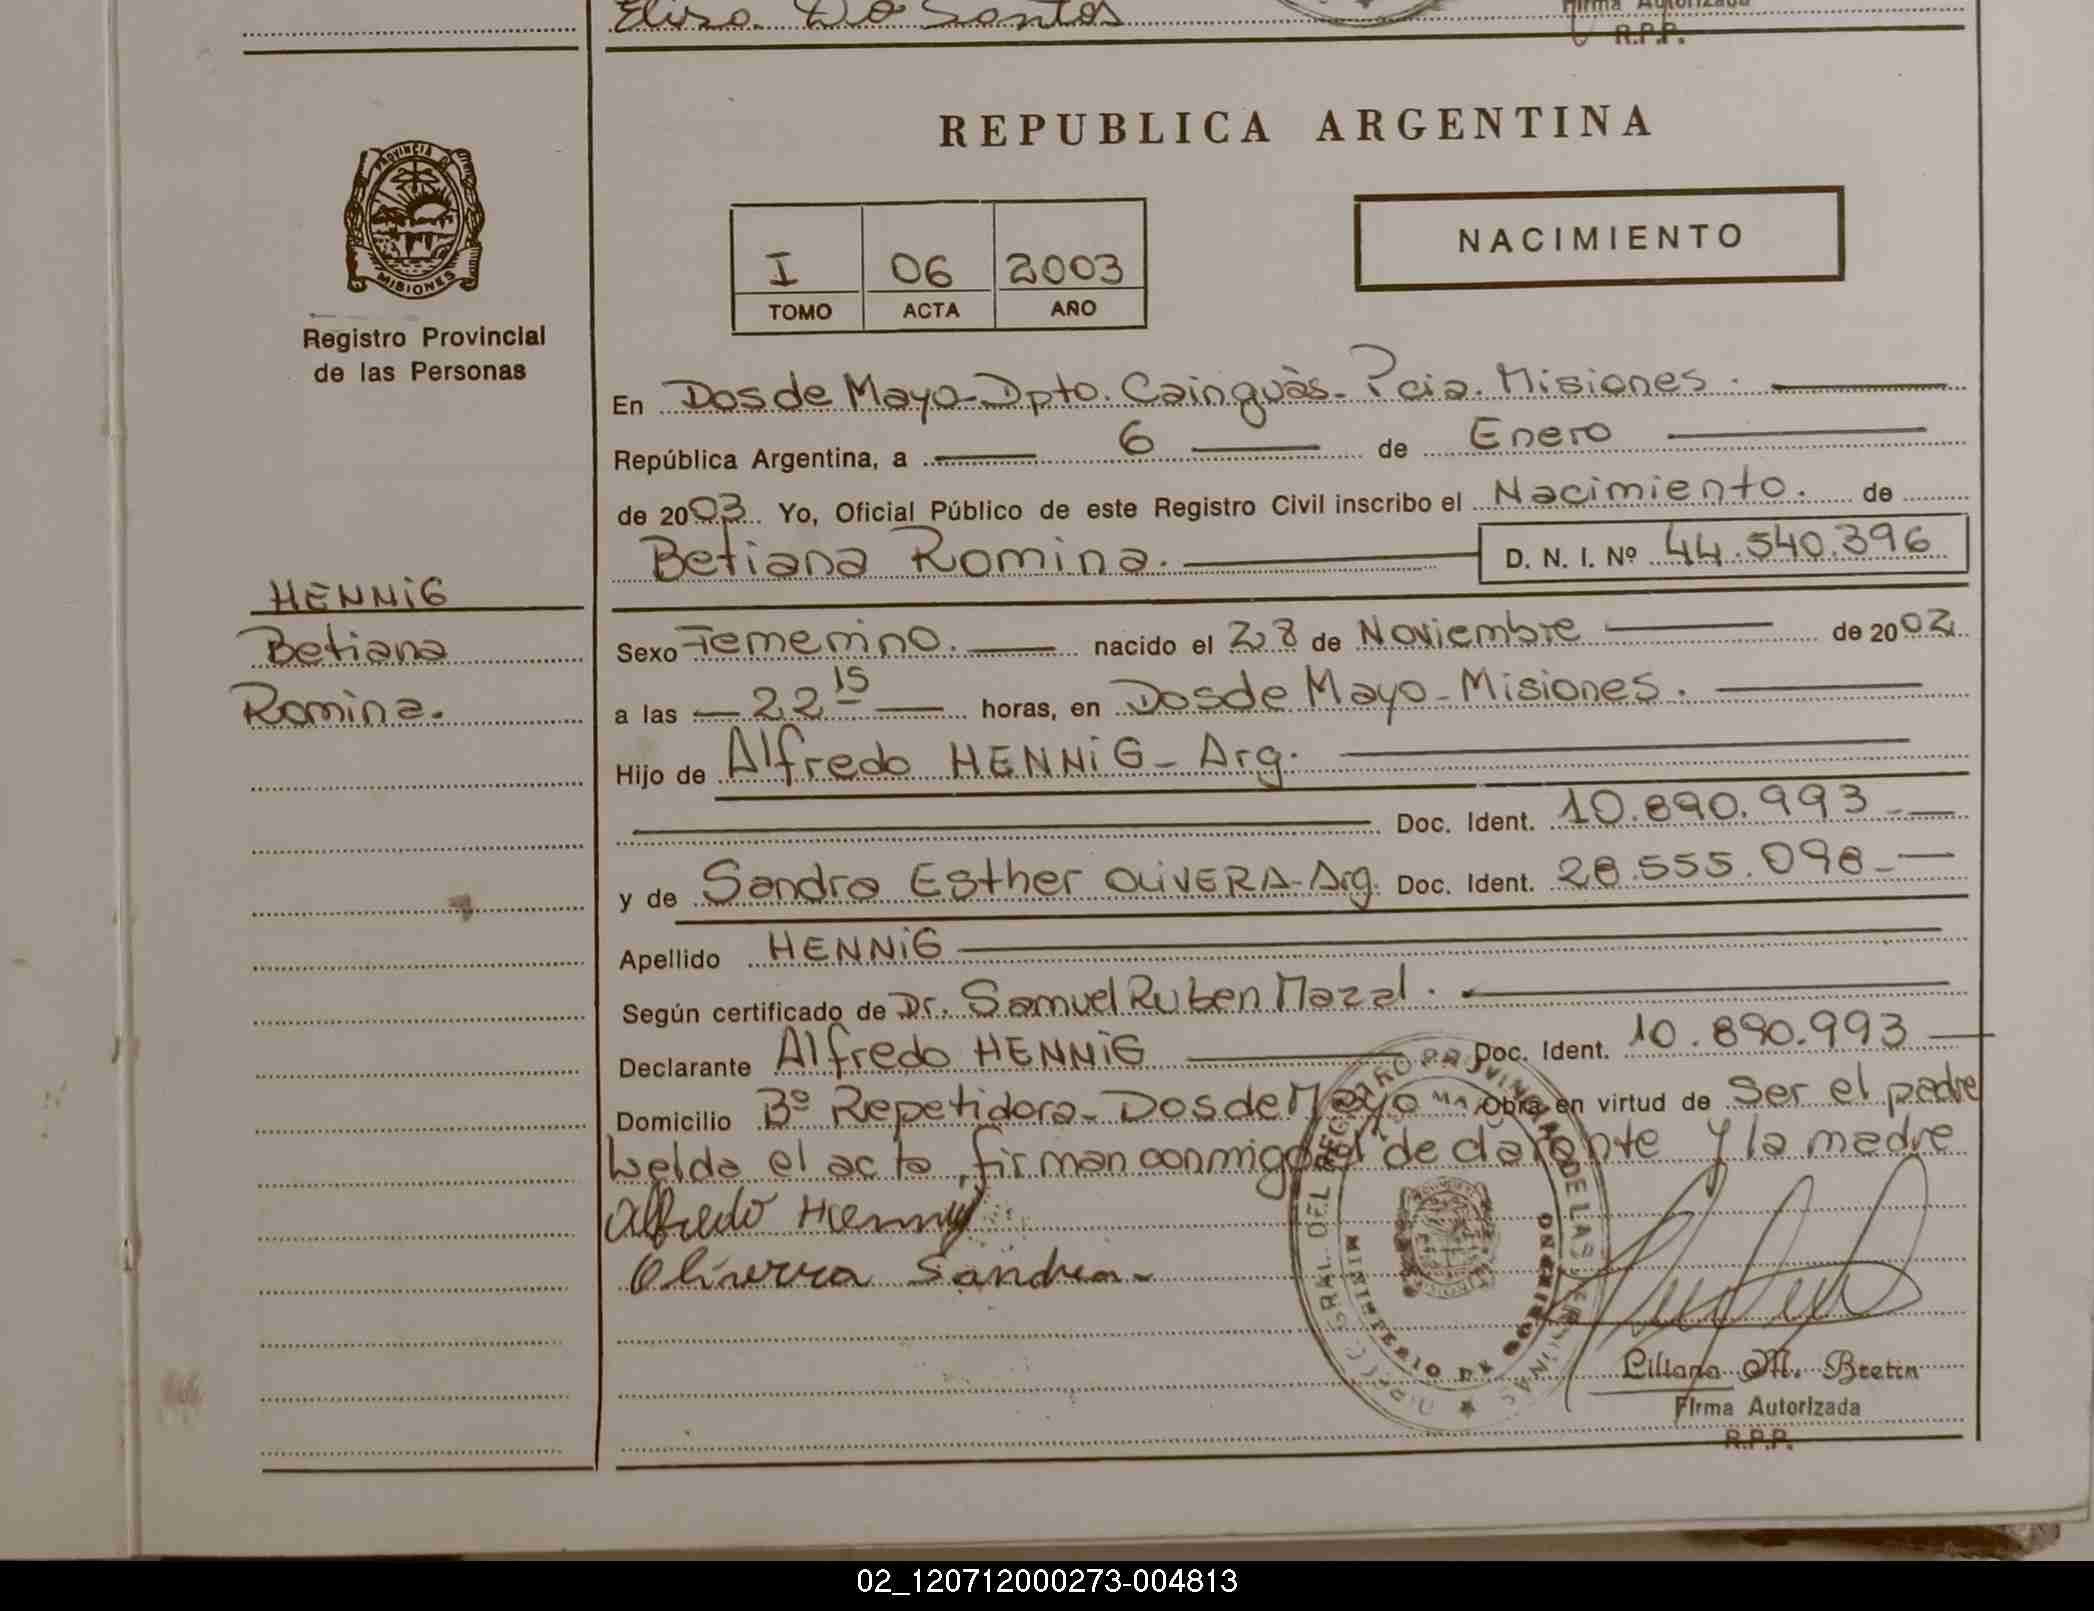 Elisa Do Santos
Firma Autorizada
R.P.P.
PROVINCIA DE
MISIONES
Registro Provincial
de las Personas
REPUBLICA ARGENTINA
I 06 2003
TOMO ACTA AÑO
NACIMIENTO
En Dos de Mayo-Dpto. Cainguàs- Pcia. Misiones.
República Argentina, a 6 de Enero
de 2003. Yo, Oficial Público de este Registro Civil inscribo el Nacimiento. de
Betiana Romina. D. N. I. Nº 44.540.396
HENNiG
Betiana
Romina.
Sexo Femenino. nacido el 28 de Noviembre de 2002
a las 22 15 horas, en Dos de Mayo-Misiones.
Hijo de Alfredo HENNiG- Arg.
Doc. Ident. 10.890.993
y de Sandra Esther OLiVERA-Arg. Doc. Ident. 28.555.098
Apellido HENNiG
Según certificado de Dr. Samuel Ruben Mazal.
Declarante Alfredo HENNiG Doc. Ident. 10.890.993
Domicilio Bº Repetidora- Dos de Mayo Mˢ Obra en virtud de Ser el padre
Leída el acta, firman conmigo el declarante y la madre
Alfredo Hennig
Oliverra Sandra
REGISTRO PROVINCIAL DE LAS PERSONAS
MINISTERIO DE GOBIERNO
Liliana M. Bretin
Firma Autorizada
R.P.P.
02_120712000273-004813